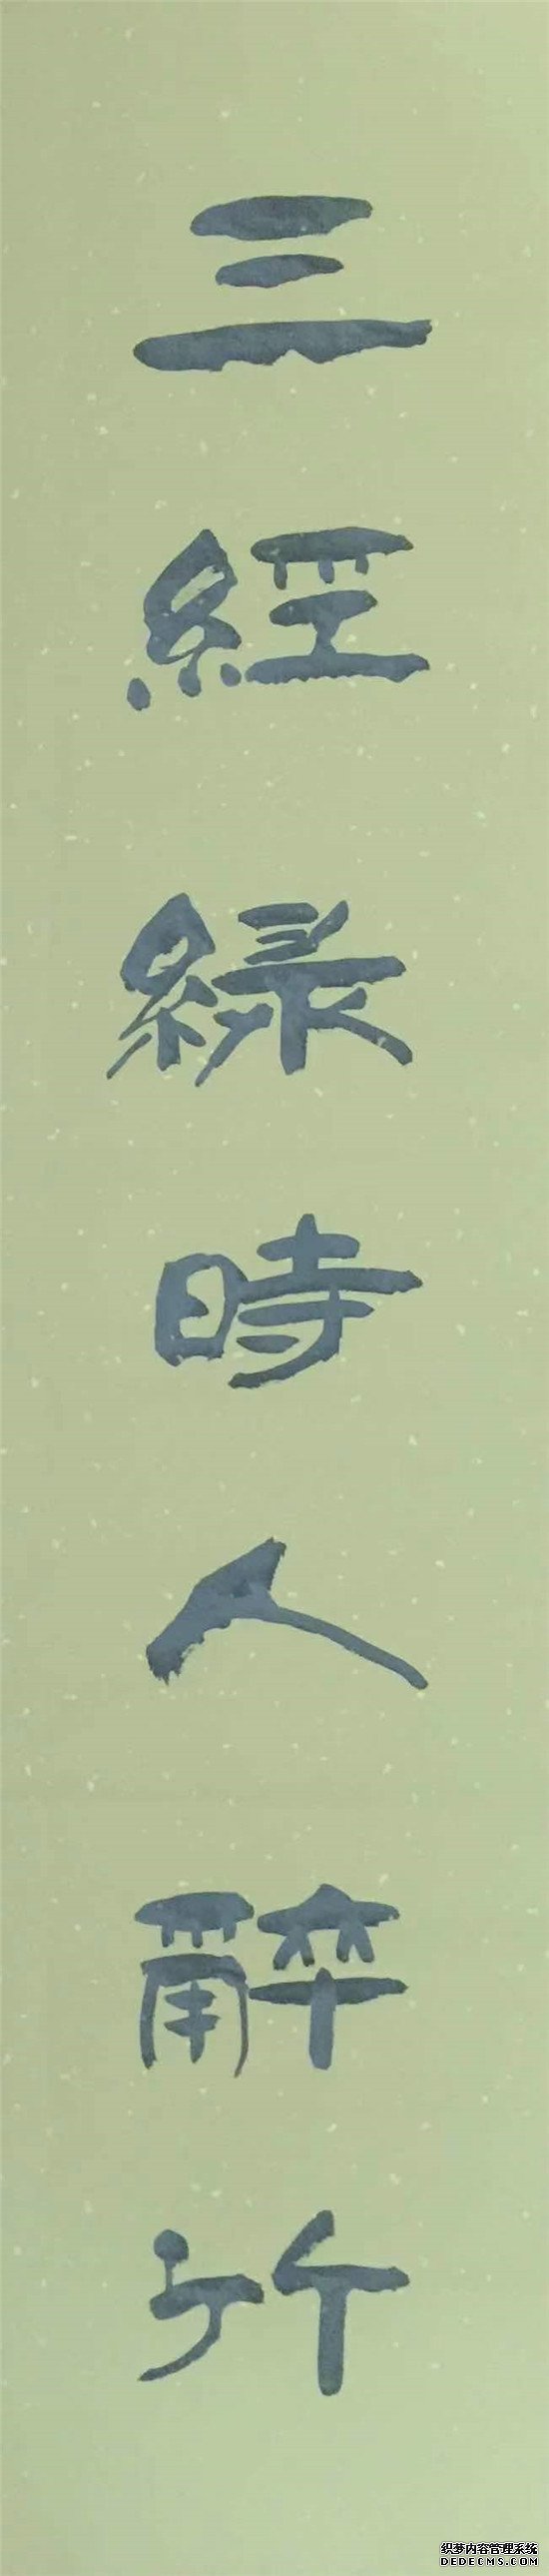 三經綠時人醉竹
织梦内容管理系统
DEDECMS.COM